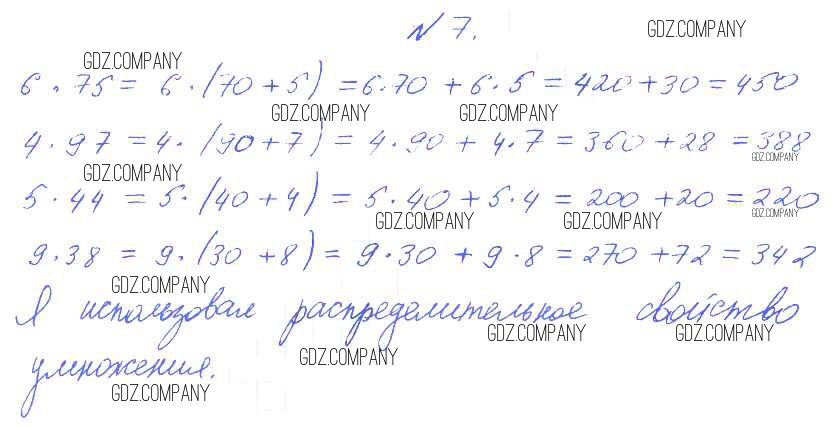 № 7.
GDZ.COMPANY
GDZ.COMPANY
6 · 75 = 6 · (70 + 5) = 6·70 + 6·5 = 420 + 30 = 450
GDZ.COMPANY GDZ.COMPANY
4 · 97 = 4 · (90 + 7) = 4 · 90 + 4 · 7 = 360 + 28 = 388
GDZ.COMPANY GDZ.COMPANY
5 · 44 = 5 · (40 + 4) = 5 · 40 + 5 · 4 = 200 + 20 = 220
GDZ.COMPANY GDZ.COMPANY GDZ.COMPANY
9 · 38 = 9 · (30 + 8) = 9 · 30 + 9 · 8 = 270 + 72 = 342
GDZ.COMPANY
Я использовал распределительное свойство
GDZ.COMPANY GDZ.COMPANY
умножения.
GDZ.COMPANY
GDZ.COMPANY